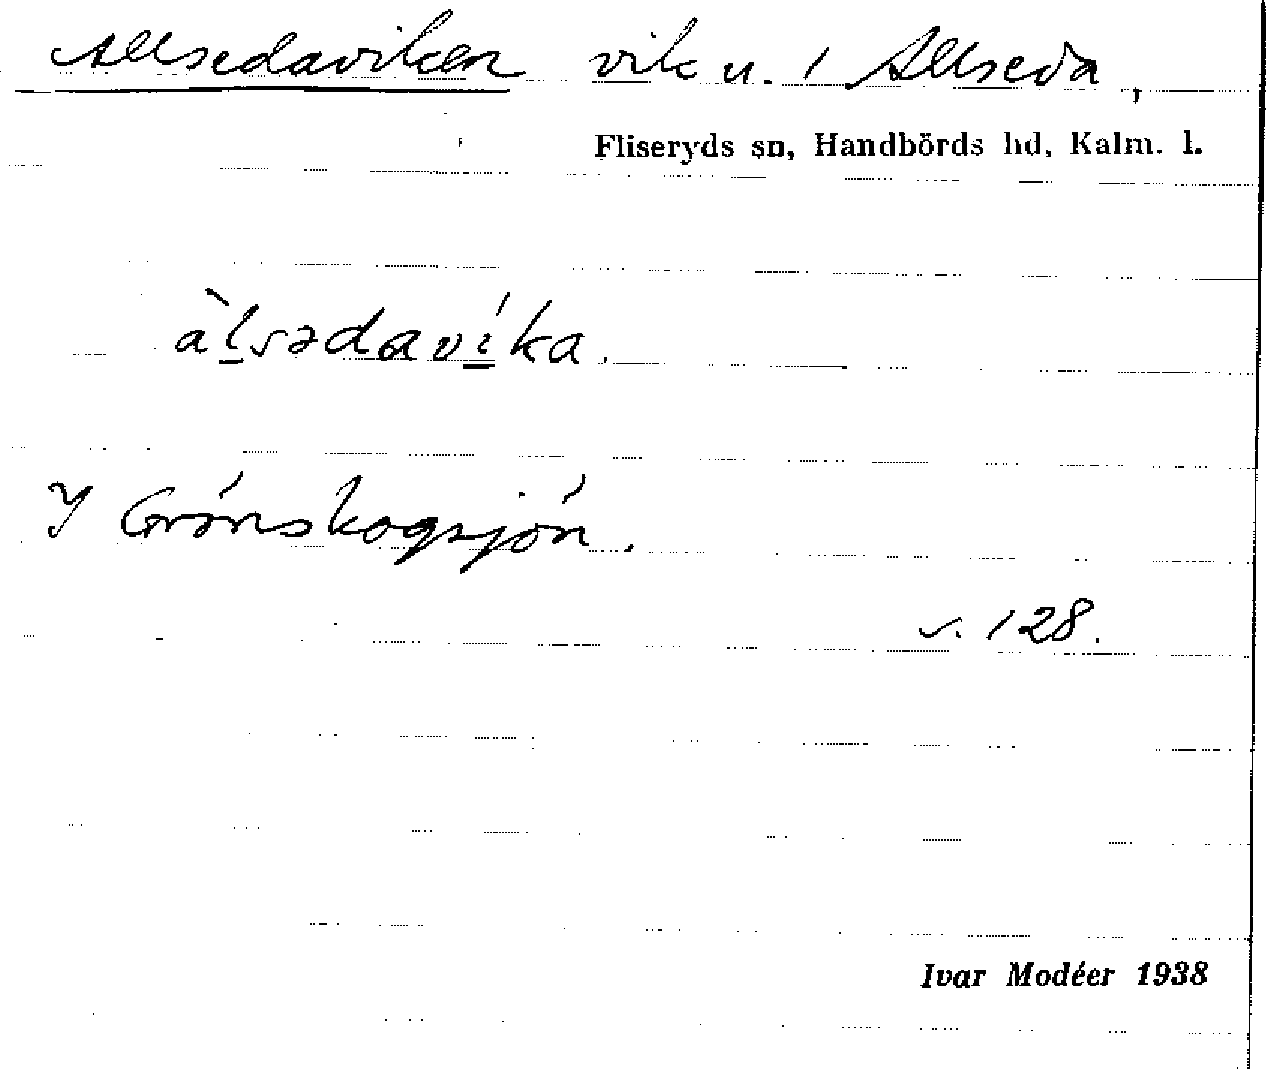 Allsedaviken vik u. 1 Allseda,
Fliseryds sn, Handbörds hd, Kalm. l.
àlsədavíka.
I Grönskogsjön.
s. 128.
Ivar Modéer 1938